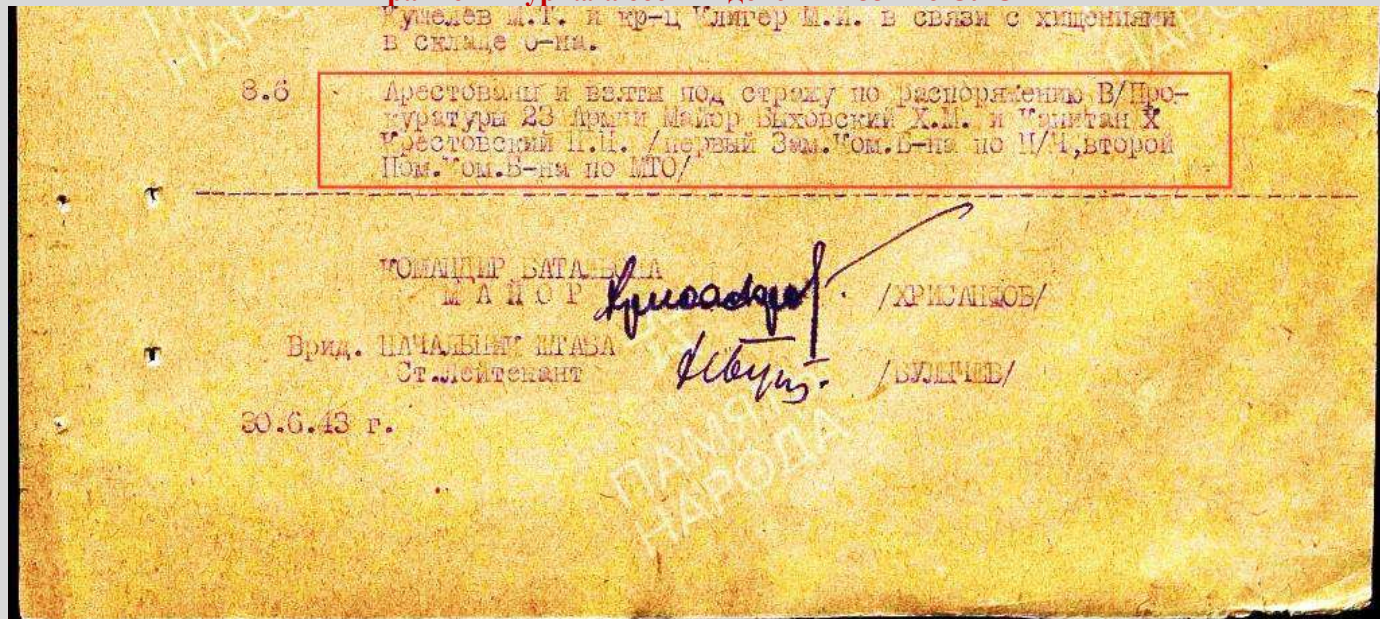 Кушелев М.Т. и кр-ц Клигер М.И. в связи с хищениями
в складе б-на.
8.6 Арестованы и взяты под стражу по распоряжению В/Про-
куратуры 23 Армии Майор Быховский Х.М. и Капитан Х
Крестовский П.П. /первый Зам.Ком.Б-на по П/Ч,второй
Пом.Ком.Б-на по МТО/
КОМАНДИР БАТАЛЬОНА
МАЙОР /ХРИСАНФОВ/
Врид. НАЧАЛЬНИК ШТАБА
Ст.Лейтенант /БУЛЫЧЕВ/
30.6.43 г.
ПАМЯТЬ
НАРОДА